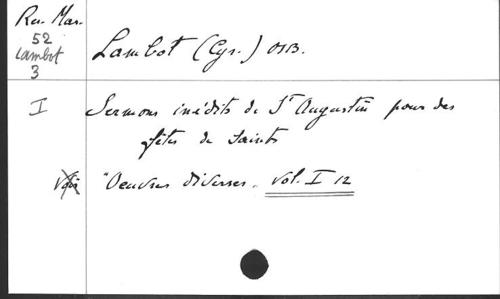 Rev. Mar.
52
Lambot
3
Lambot (Cyr.) OSB.
I
Sermons inédits de St Augustin pour des
fêtes de saints
Voir
"Oeuvres diverses. Vol. I 12